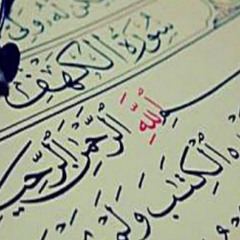 سُورَةُ الْكَهْفِ
بِسْمِ اللَّهِ الرَّحْمَٰنِ الرَّحِيمِ
الْكِتَابَ وَلَمْ